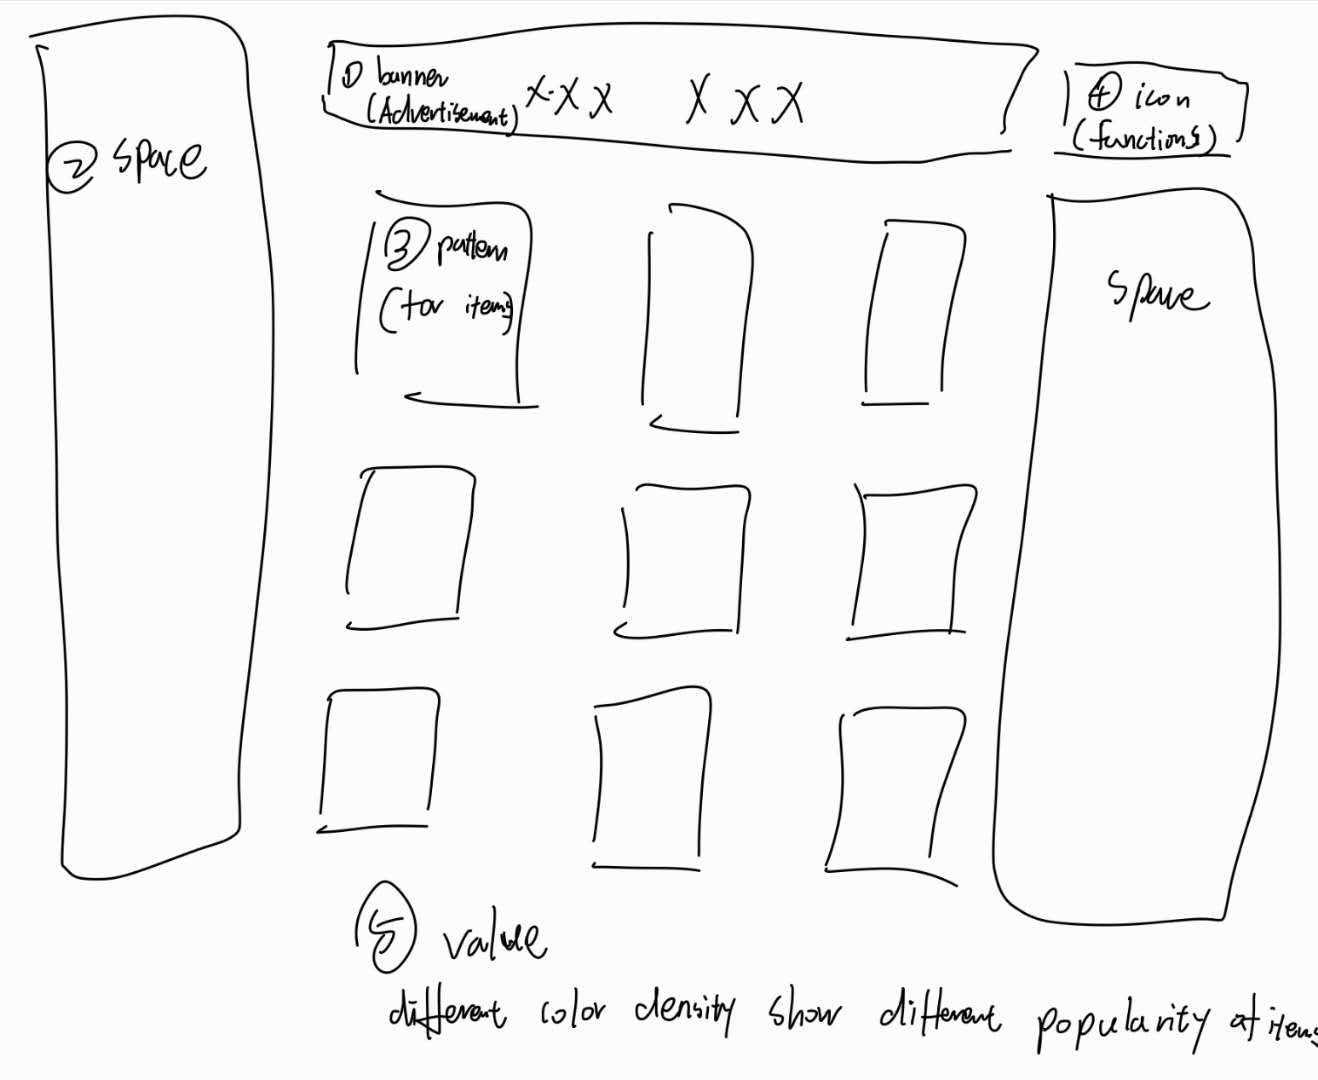 ① banner
(Advertisement) X X X X X X
④ icon
(functions)
② space
③ pattern
(for items)
space
⑤ value
different color density show different popularity of items